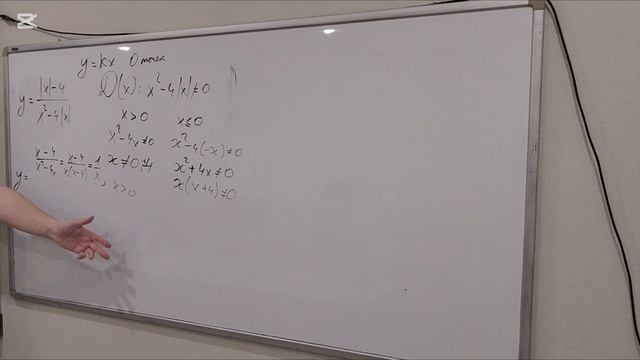 y = kx 0 точек
y = \frac{|x|-4}{x^2-4|x|} D(x): x^2-4|x| ≠ 0
x > 0 x ≤ 0
x^2-4x ≠ 0 x^2-4(-x) ≠ 0
y = \frac{x-4}{x^2-4x} = \frac{x-4}{x(x-4)} = \frac{1}{x}, x > 0 x ≠ 0; 4 x^2+4x ≠ 0
x(x+4) ≠ 0